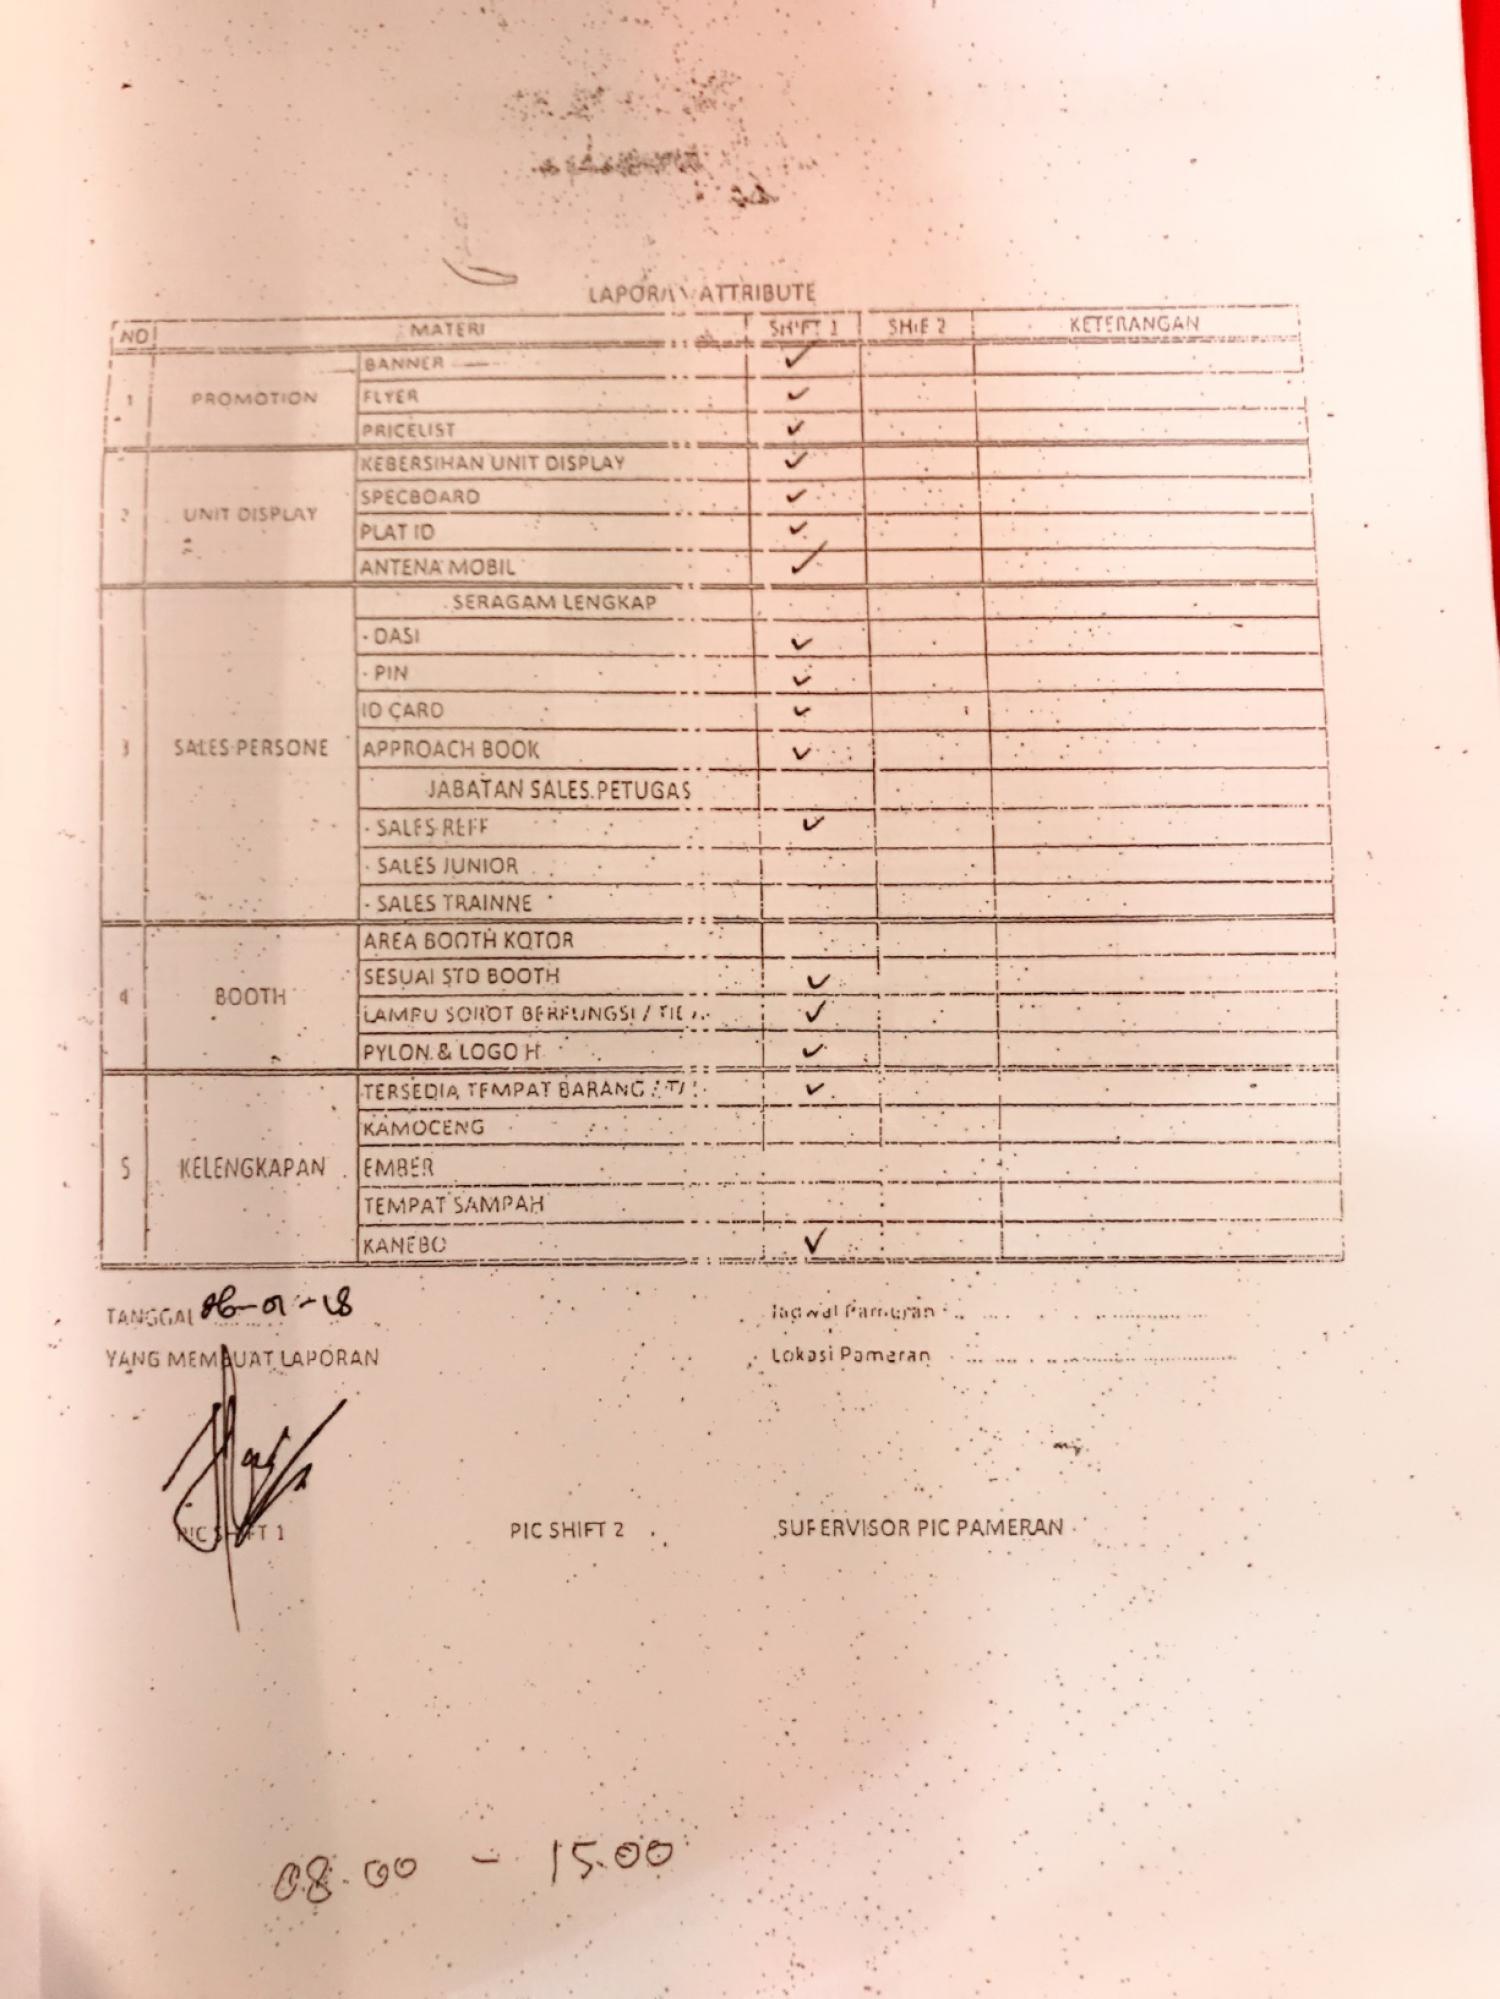 LAPORAN ATTRIBUTE
NO MATERI SHIFT 1 SHIF 2 KETERANGAN
1 PROMOTION
BANNER ✓
FLYER ✓
PRICELIST ✓
2 UNIT DISPLAY
KEBERSIHAN UNIT DISPLAY ✓
SPECBOARD ✓
PLAT ID ✓
ANTENA MOBIL ✓
3 SALES PERSONE
SERAGAM LENGKAP
- DASI ✓
- PIN ✓
ID CARD ✓
APPROACH BOOK ✓
JABATAN SALES PETUGAS
- SALES REFF ✓
- SALES JUNIOR
- SALES TRAINNE
4 BOOTH
AREA BOOTH KOTOR
SESUAI STD BOOTH ✓
LAMPU SOROT BERFUNGSI / ✓
PYLON & LOGO H ✓
5 KELENGKAPAN
TERSEDIA TEMPAT BARANG ✓
KAMOCENG
EMBER
TEMPAT SAMPAH
KANEBO ✓
TANGGAL 06-01-18
YANG MEMBUAT LAPORAN
Jadwal Pameran
Lokasi Pameran
PIC SHIFT 1 PIC SHIFT 2 SUPERVISOR PIC PAMERAN
08.00 - 15.00